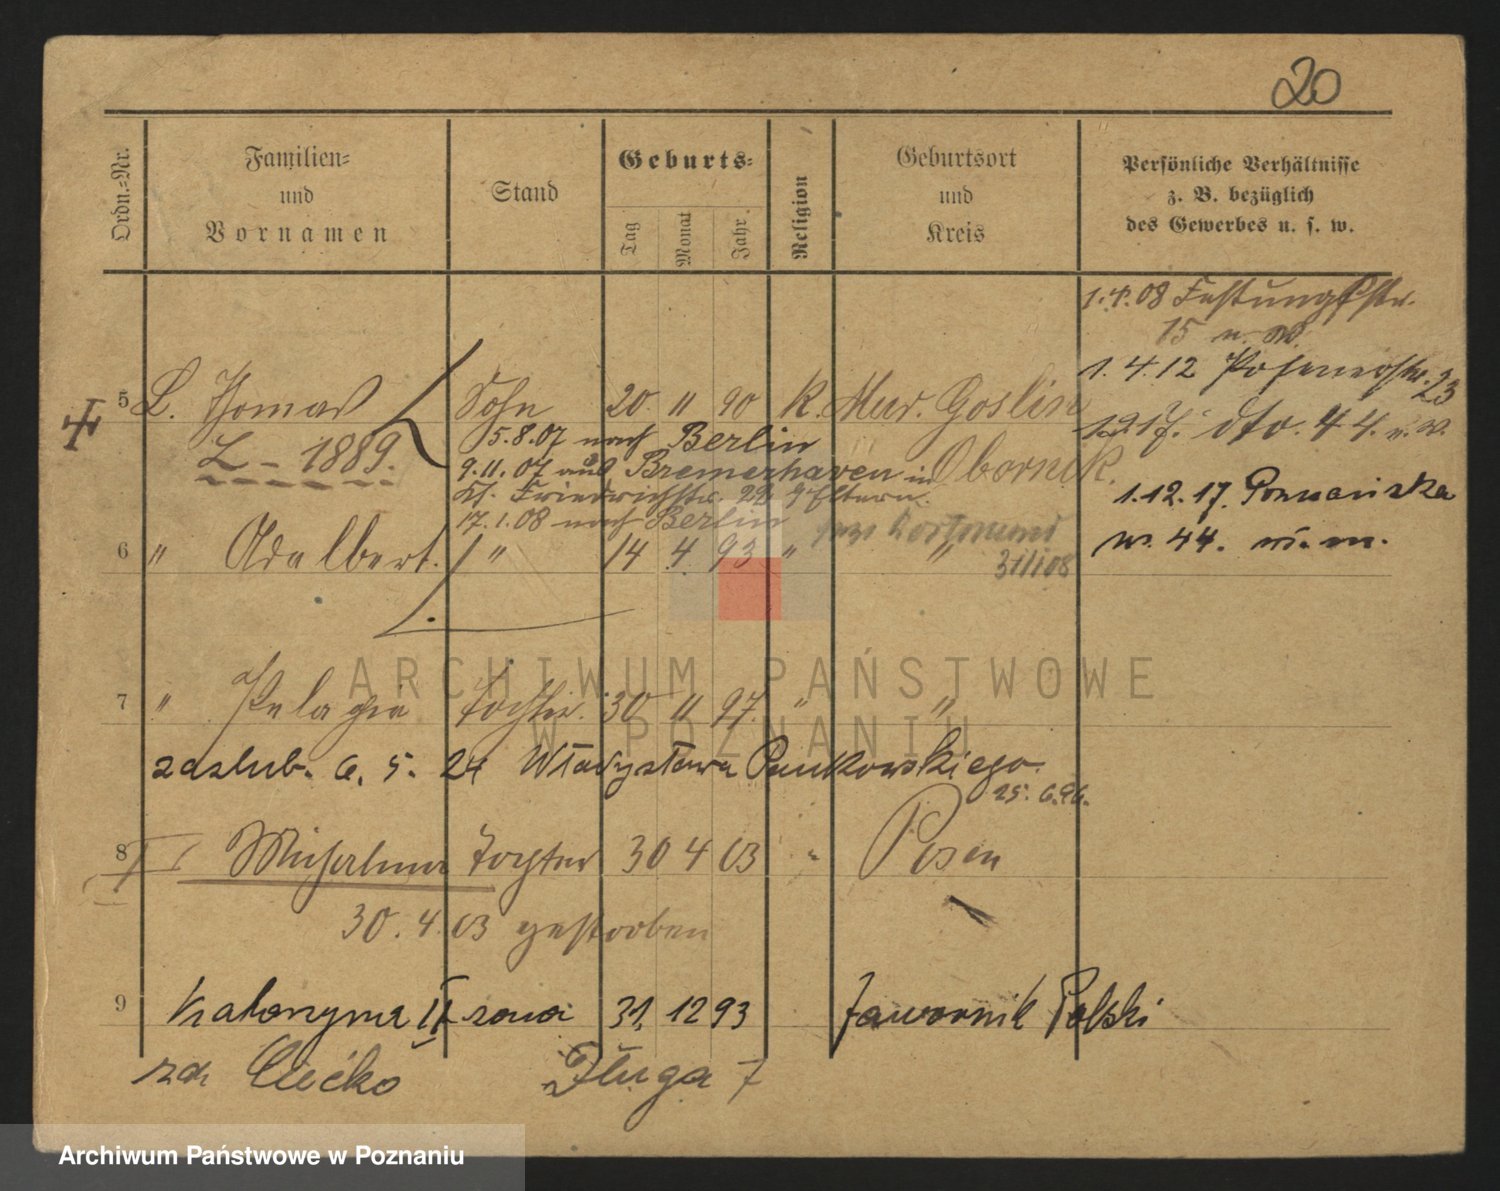 20
Ordn.-Nr.
Familien-
und
Vornamen
Stand
Geburts-
Tag
Monat
Jahr
Religion
Geburtsort
und
Kreis
Persönliche Verhältnisse
z. B. bezüglich
des Gewerbes u. s. w.
1.4.08 Festungsstr.
15 u. W.
1.4.12 Posenerstr. 23
dto. 44. u. W.
1.12.17. Poznańska
44.
5 L. Thomas Sohn 20. " 90 K. Mur. Goslin
L - 1889. Obornik.
5.8.07 nach Berlin
9.11.07 aus Bremerhaven in
Kl. Friedrichstr. 22 Eltern.
17.1.08 nach Berlin
6 " Adalbert. " 14 4. 93 " "
31/1 08
7 " Pelagia Tochter. 30 " 97. " "
zaslub. 6. 5. 24 Władysława Pankowskiego
25. 6.96.
8 Tochter 30 4 03 " Posen
30. 4. 03 gestorben
9 Katarzyna II żona 31. 12 93 Jawornik Polski
Długa 7
ARCHIWUM PAŃSTWOWE
W POZNANIU
Archiwum Państwowe w Poznaniu